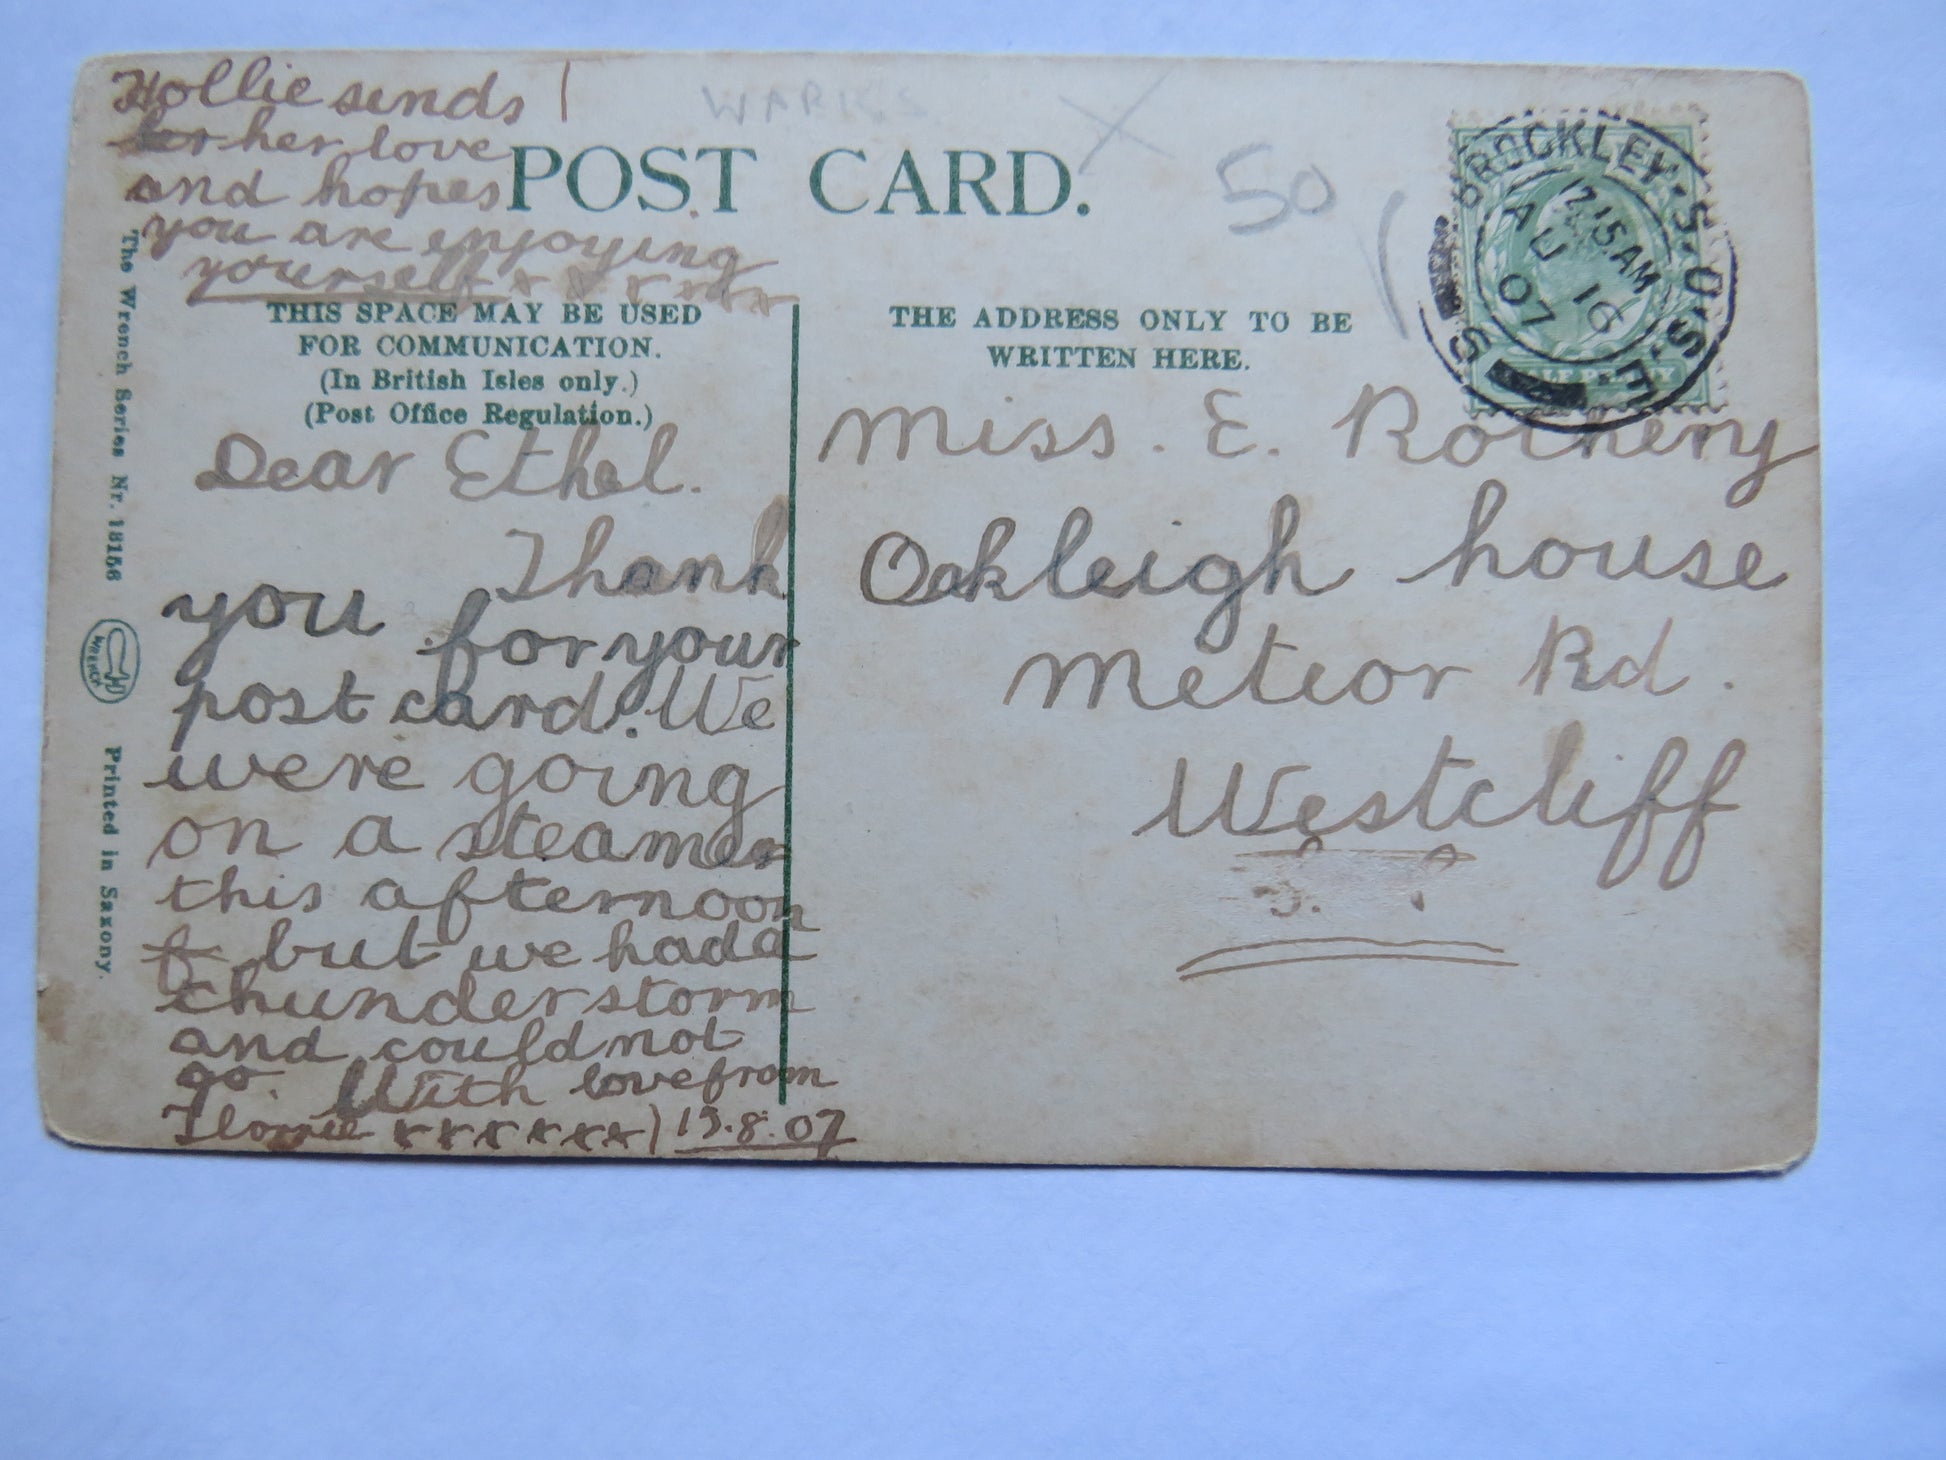 Hollie sends
her love
and hopes
you are enjoying
yourself x x x x x x
WARKS
50
POST CARD.
THIS SPACE MAY BE USED
FOR COMMUNICATION.
(In British Isles only.)
(Post Office Regulation.)
THE ADDRESS ONLY TO BE
WRITTEN HERE.
BROCKLEY.S.O.S.E.
12.15AM
AU 16
07
S
HALF PENNY
The Wrench Series Nr. 18156
WRENCH
Printed in Saxony.
Dear Ethel.
Thank
you for your
post card. We
were going
on a steamer
this afternoon
but we had a
thunderstorm
and could not
go. With love from
Florrie x x x x x x 15.8.07
Miss. E. Rothery
Oakleigh house
Meteor Rd.
Westcliff